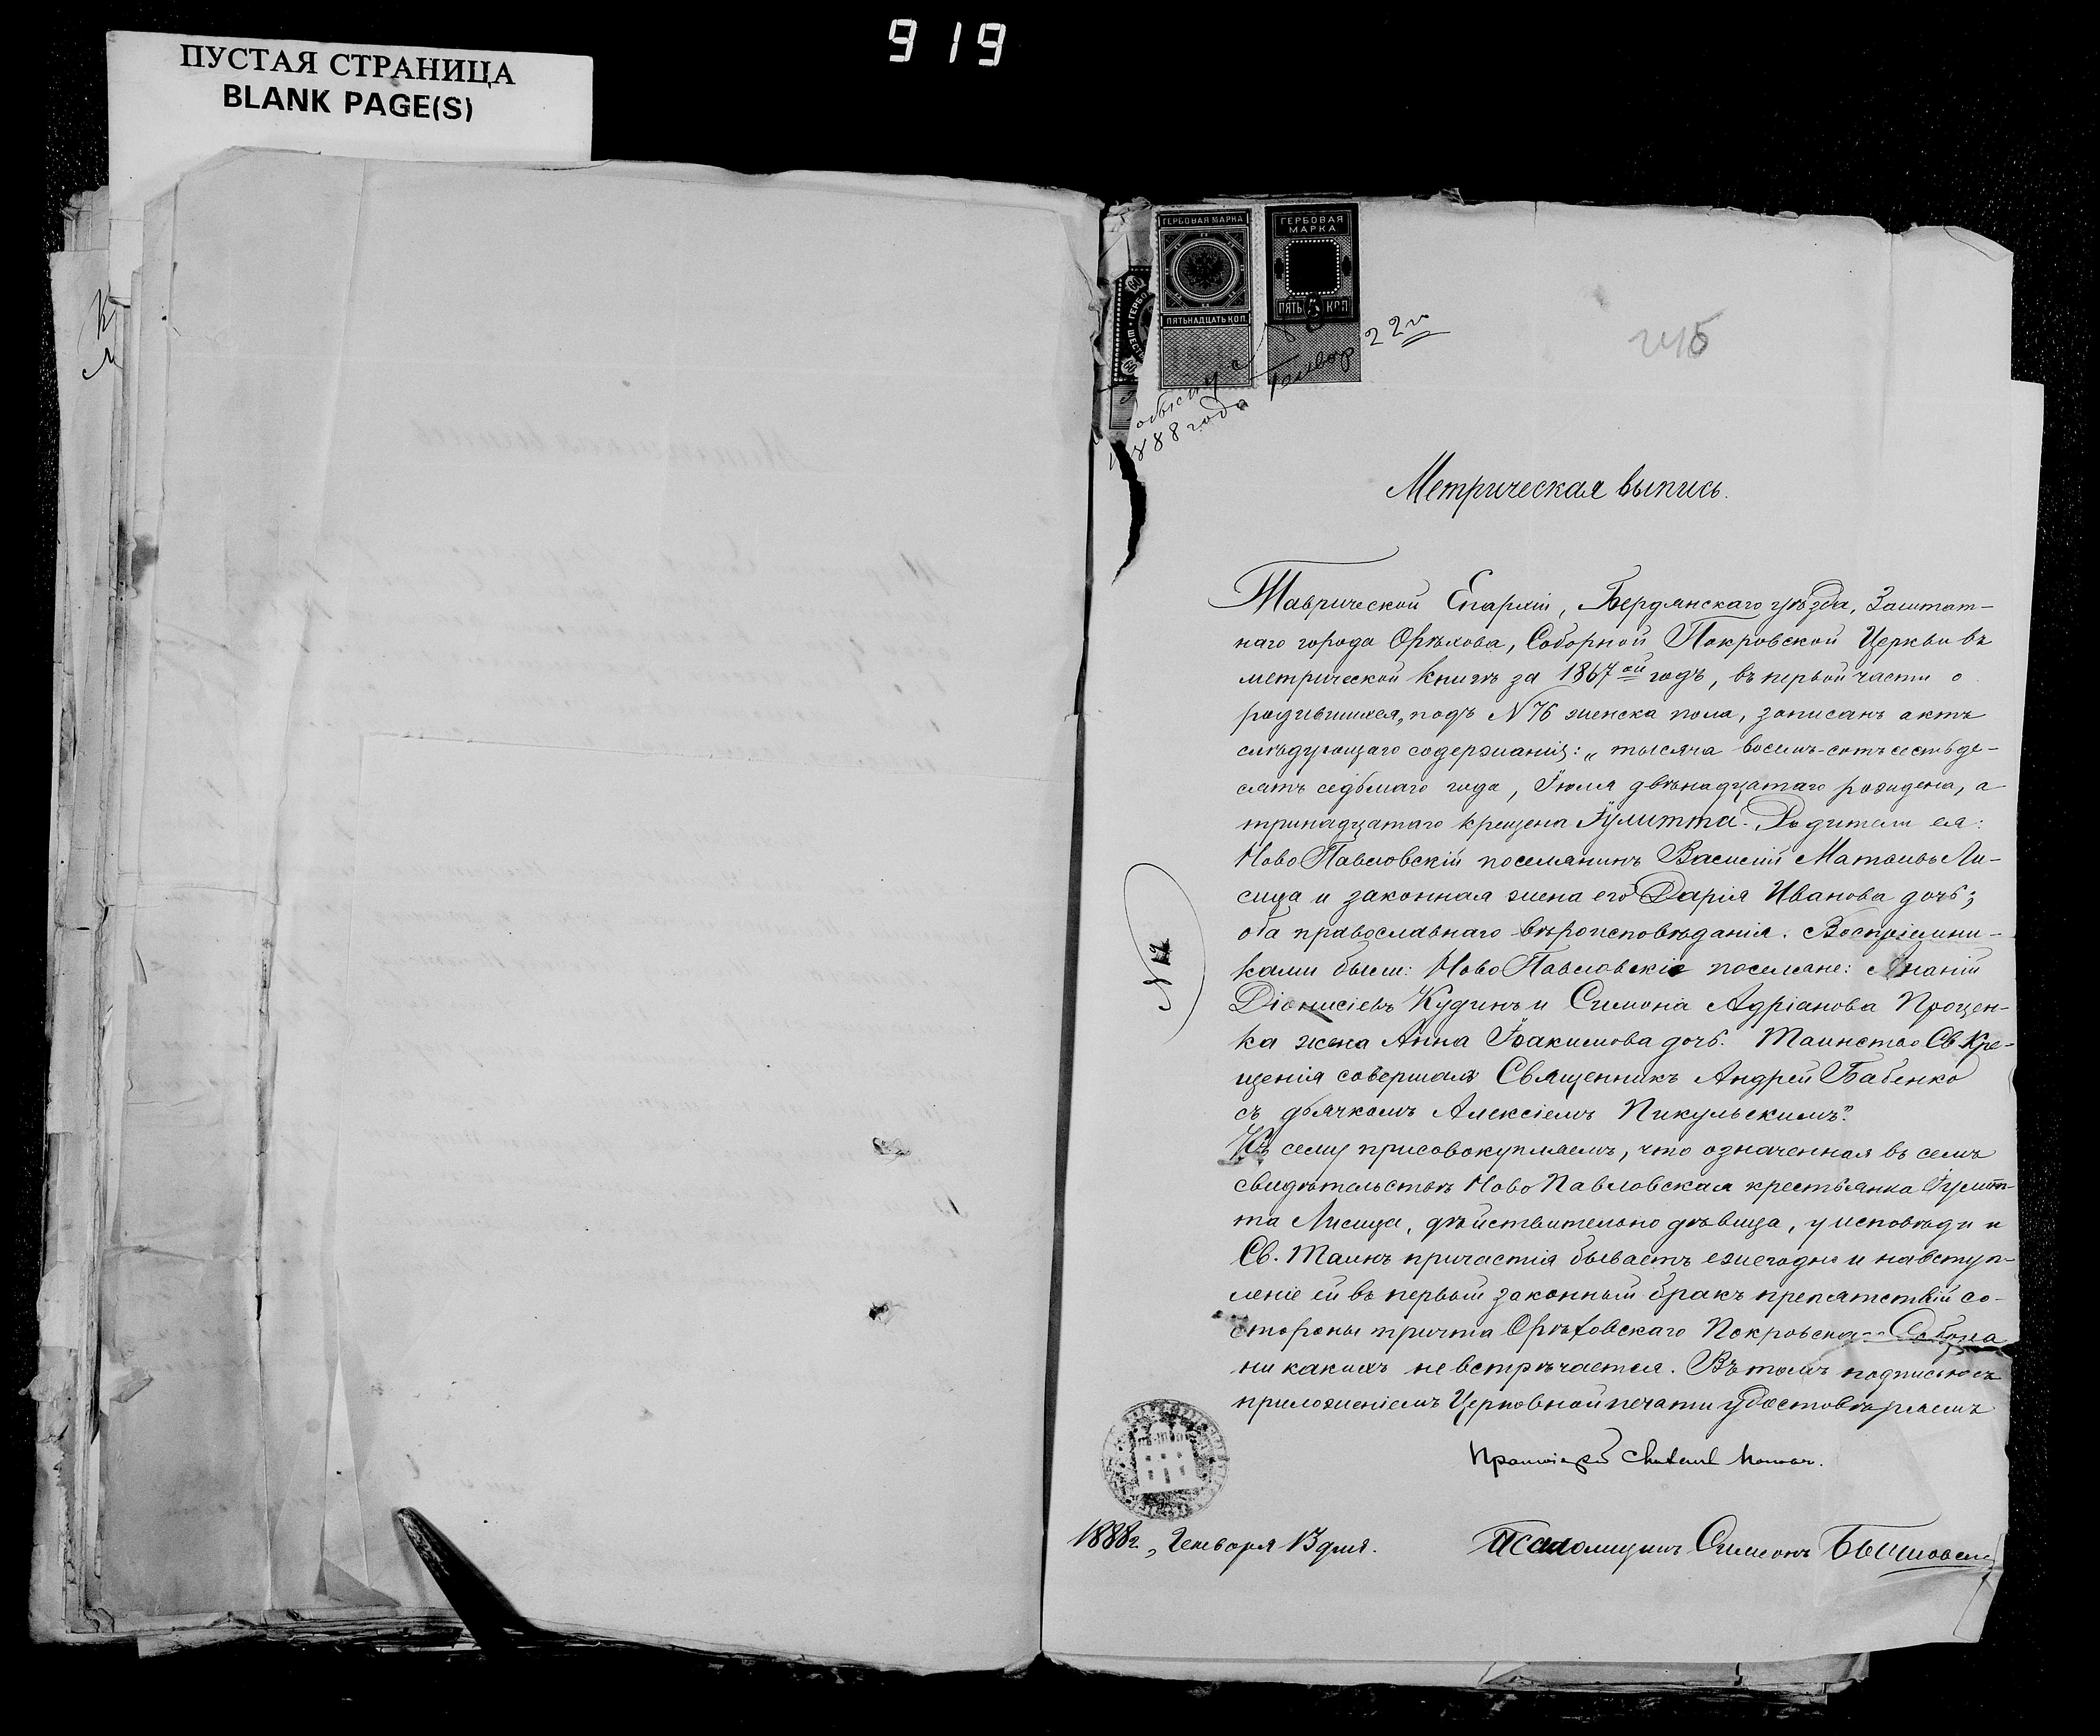 919
ПУСТАЯ СТРАНИЦА
BLANK PAGE(S)
ГЕРБОВАЯ МАРКА
ПЯТЬНАДЦАТЬ КОП.
ГЕРБОВАЯ
МАРКА
ПЯТЬ 5 КОП
22го
1888 года Генвар
Метрическая выпись.
Таврической Епархіи, Бердянскаго уѣзда, Заштат-
наго города Орѣхова, Соборной Покровской Церкви въ
метрической книгѣ за 1867ой годъ, въ первой части о
родившихся, подъ N 76 женска пола, записанъ актъ
слѣдующаго содержанія: „тысяча восемь-сотъ шестьде-
сятъ седьмаго года, Іюля двѣнадцатаго рождена, а
тринадцатаго крещена Іулитта. Родители ея:
Ново Павловскій поселянинъ Василій Матвѣевъ Ли-
сица и законная жена его Дарія Иванова дочь;
оба православнаго вѣроисповѣданія. Воспріемни-
ками были: Ново Павловскіе поселяне: Ананій
Діонисіевъ Кудинъ и Симона Адріанова Процен-
ка жена Анна Іоакимова дочь. Таинство Св. Кре-
щенія совершалъ Священникъ Андрей Бабенко
съ дьячкомъ Алексіемъ Пикульскимъ."
Къ сему присовокупляемъ, что означенная въ семъ
свидѣтельствѣ Ново Павловская крестьянка Іулит-
та Лисица, дѣйствительно дѣвица, у исповѣди и
Св. Таинъ причастія бываетъ ежегодно и на вступ-
леніе ей въ первый законный бракъ препятствій со
стороны причта Орѣховскаго Покровскаго Собора
ни какихъ не встрѣчается. Въ томъ подписью съ
приложеніемъ Церковной печати удостовѣряемъ
Протоіерей
1888 г., Генваря 13 дня.
Псаломщикъ Симеонъ